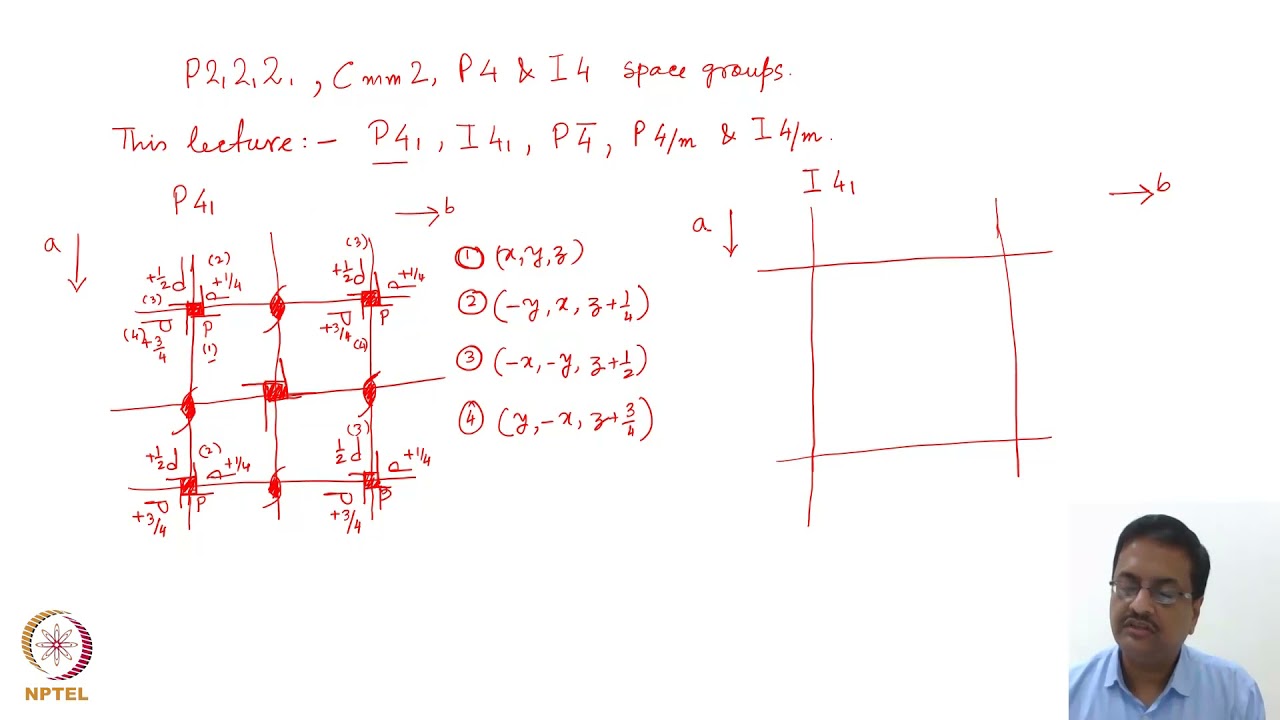 P2₁2₁2₁, Cmm2, P4 & I4 space groups.
This lecture:- P4₁, I4₁, P4̅, P4/m & I4/m.
P4₁
→ b
a
+1/2 d (2) +1/4
(3)
(4) +3/4 P P (1)
(3)
+1/2 d +1/4
+3/4 P P
(4)
+1/2 d (2) +1/4
+3/4 P P
(3)
1/2 d +1/4
+3/4 P P
① (x, y, z)
② (-y, x, z+1/4)
③ (-x, -y, z+1/2)
④ (y, -x, z+3/4)
I4₁
→ b
a
NPTEL